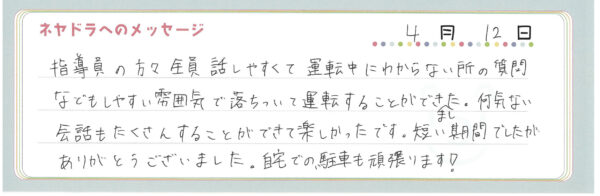 ネヤドラへのメッセージ
4月12日
指導員の方々全員話しやすくて運転中にわからない所の質問
なでもしやすい雰囲気で落ちついて運転することができまし た。何気ない
会話もたくさんすることができて楽しかったです。短い期間でしたが
ありがとうございました。自宅での駐車も頑張ります!